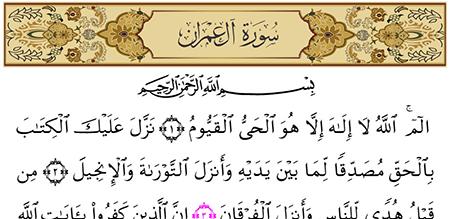 سُورَةُ آلِ عِمْرَان
بِسْمِ اللَّهِ الرَّحْمَٰنِ الرَّحِيمِ
الٓمٓ ۚ اللَّهُ لَا إِلَٰهَ إِلَّا هُوَ الْحَىُّ الْقَيُّومُ ﴿١﴾ نَزَّلَ عَلَيْكَ الْكِتَٰبَ
بِالْحَقِّ مُصَدِّقًا لِمَا بَيْنَ يَدَيْهِ وَأَنزَلَ التَّوْرَىٰةَ وَالْإِنجِيلَ ﴿٢﴾ مِن
قَبْلُ هُدًى لِلنَّاسِ وَأَنزَلَ الْفُرْقَانَ ﴿٣﴾ إِنَّ الَّذِينَ كَفَرُوا۟ بِـَٔايَٰتِ اللَّهِ